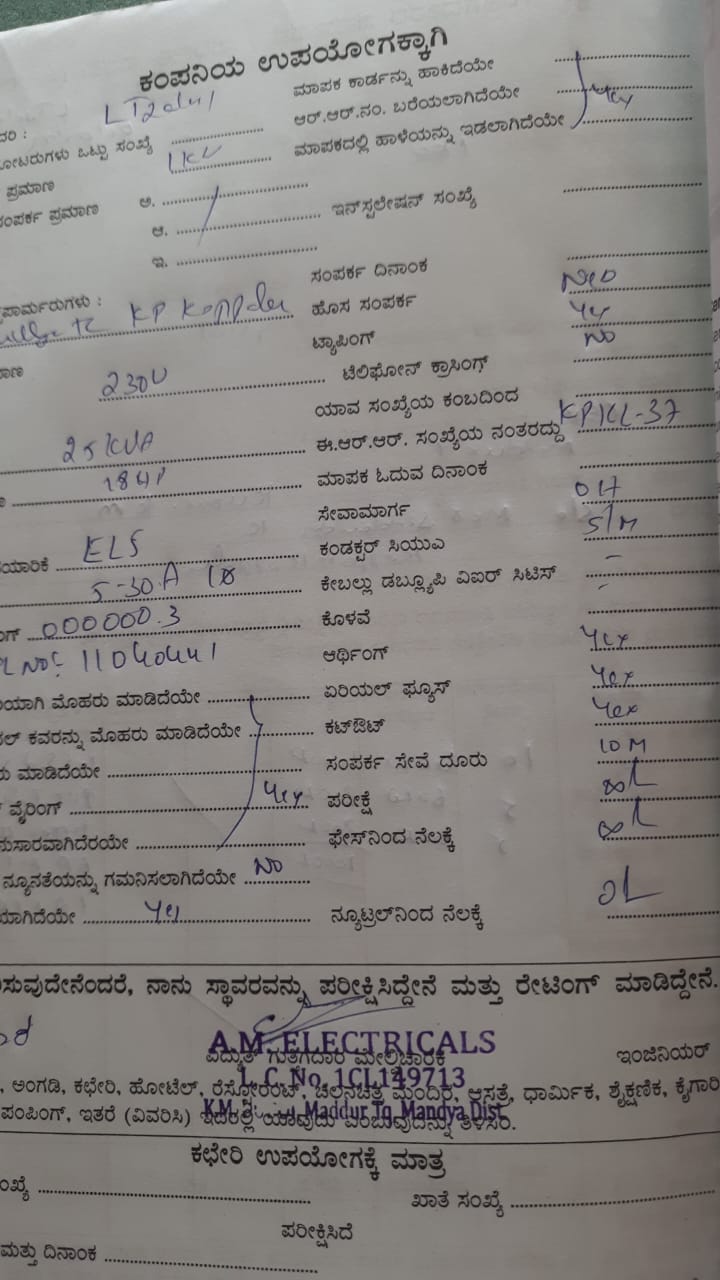 ಕಂಪನಿಯ ಉಪಯೋಗಕ್ಕಾಗಿ
ದರ : LT2 ಮಾಪಕ ಕಾರ್ಡನ್ನು ಹಾಕಿದೆಯೇ
ೋಟರುಗಳು ಒಟ್ಟು ಸಂಖ್ಯೆ ಆರ್.ಆರ್.ನಂ. ಬರೆಯಲಾಗಿದೆಯೇ Yes
ಪ್ರಮಾಣ 1KW ಮಾಪಕದಲ್ಲಿ ಹಾಳೆಯನ್ನು ಇಡಲಾಗಿದೆಯೇ
ಸಂಪರ್ಕ ಪ್ರಮಾಣ ಅ.
ಆ. ಇನ್‌ಸ್ಟಲೇಷನ್ ಸಂಖ್ಯೆ
ಇ.
ಸಂಪರ್ಕ ದಿನಾಂಕ
ಫಾರ್ಮರುಗಳು : KP Koppalu ಹೊಸ ಸಂಪರ್ಕ New
ಟ್ಯಾಪಿಂಗ್ Yes
ಮಾಣ 230V ಟೆಲಿಫೋನ್ ಕ್ರಾಸಿಂಗ್ No
ಯಾವ ಸಂಖ್ಯೆಯ ಕಂಬದಿಂದ
25 KVA ಈ.ಆರ್.ಆರ್. ಸಂಖ್ಯೆಯ ನಂತರದ್ದು KPKL-37
ಮಾಪಕ ಓದುವ ದಿನಾಂಕ
ಸೇವಾಮಾರ್ಗ OH
ಯಾರಿಕೆ ELS ಕಂಡಕ್ಟರ್ ಸಿಯುಎ S/M
5-30A 1Ø ಕೇಬಲ್ಲು ಡಬ್ಲ್ಯೂಪಿ ವಿಐಆರ್ ಸಿಟಿಸ್ -
ಂಗ್ 000000.3 ಕೊಳವೆ -
L No: 11040441 ಆರ್ಥಿಂಗ್ Yes
ಿಯಾಗಿ ಮೊಹರು ಮಾಡಿದೆಯೇ ಏರಿಯಲ್ ಫ್ಯೂಸ್ Yes
ಲ್ ಕವರನ್ನು ಮೊಹರು ಮಾಡಿದೆಯೇ ಕಟ್‌ಔಟ್ Yes
ು ಮಾಡಿದೆಯೇ ಸಂಪರ್ಕ ಸೇವೆ ದೂರು 10 M
ವೈರಿಂಗ್ Yes ಪರೀಕ್ಷೆ
ುಸಾರವಾಗಿದೆರಯೇ ಫೇಸ್‌ನಿಂದ ನೆಲಕ್ಕೆ
ನ್ಯೂನತೆಯನ್ನು ಗಮನಿಸಲಾಗಿದೆಯೇ No
ಯಾಗಿದೆಯೇ Yes ನ್ಯೂಟ್ರಲ್‌ನಿಂದ ನೆಲಕ್ಕೆ
ಸುವುದೇನೆಂದರೆ, ನಾನು ಸ್ಥಾವರವನ್ನು ಪರೀಕ್ಷಿಸಿದ್ದೇನೆ ಮತ್ತು ರೇಟಿಂಗ್ ಮಾಡಿದ್ದೇನೆ.
A.M. ELECTRICALS
ವಿದ್ಯುತ್ ಗುತ್ತಿಗೆದಾರ ಮೇಲ್ವಿಚಾರಕ ಇಂಜಿನಿಯರ್
L.C.No. 1CL149713
, ಅಂಗಡಿ, ಕಛೇರಿ, ಹೋಟೆಲ್, ರೆಸ್ಟೋರೆಂಟ್, ಚಲನಚಿತ್ರ ಮಂದಿರ, ಆಸ್ಪತ್ರೆ, ಧಾರ್ಮಿಕ, ಶೈಕ್ಷಣಿಕ, ಕೈಗಾರಿ
Maddur Tq, Mandya Dist.
ಪಂಪಿಂಗ್, ಇತರೆ (ವಿವರಿಸಿ) ಇದರಲ್ಲಿ ಯಾವುದು ಎಂಬುವುದನ್ನು ತಿಳಿಸಿರಿ.
ಕಛೇರಿ ಉಪಯೋಗಕ್ಕೆ ಮಾತ್ರ
ಂಖ್ಯೆ ಖಾತೆ ಸಂಖ್ಯೆ
ಪರೀಕ್ಷಿಸಿದೆ
ಮತ್ತು ದಿನಾಂಕ